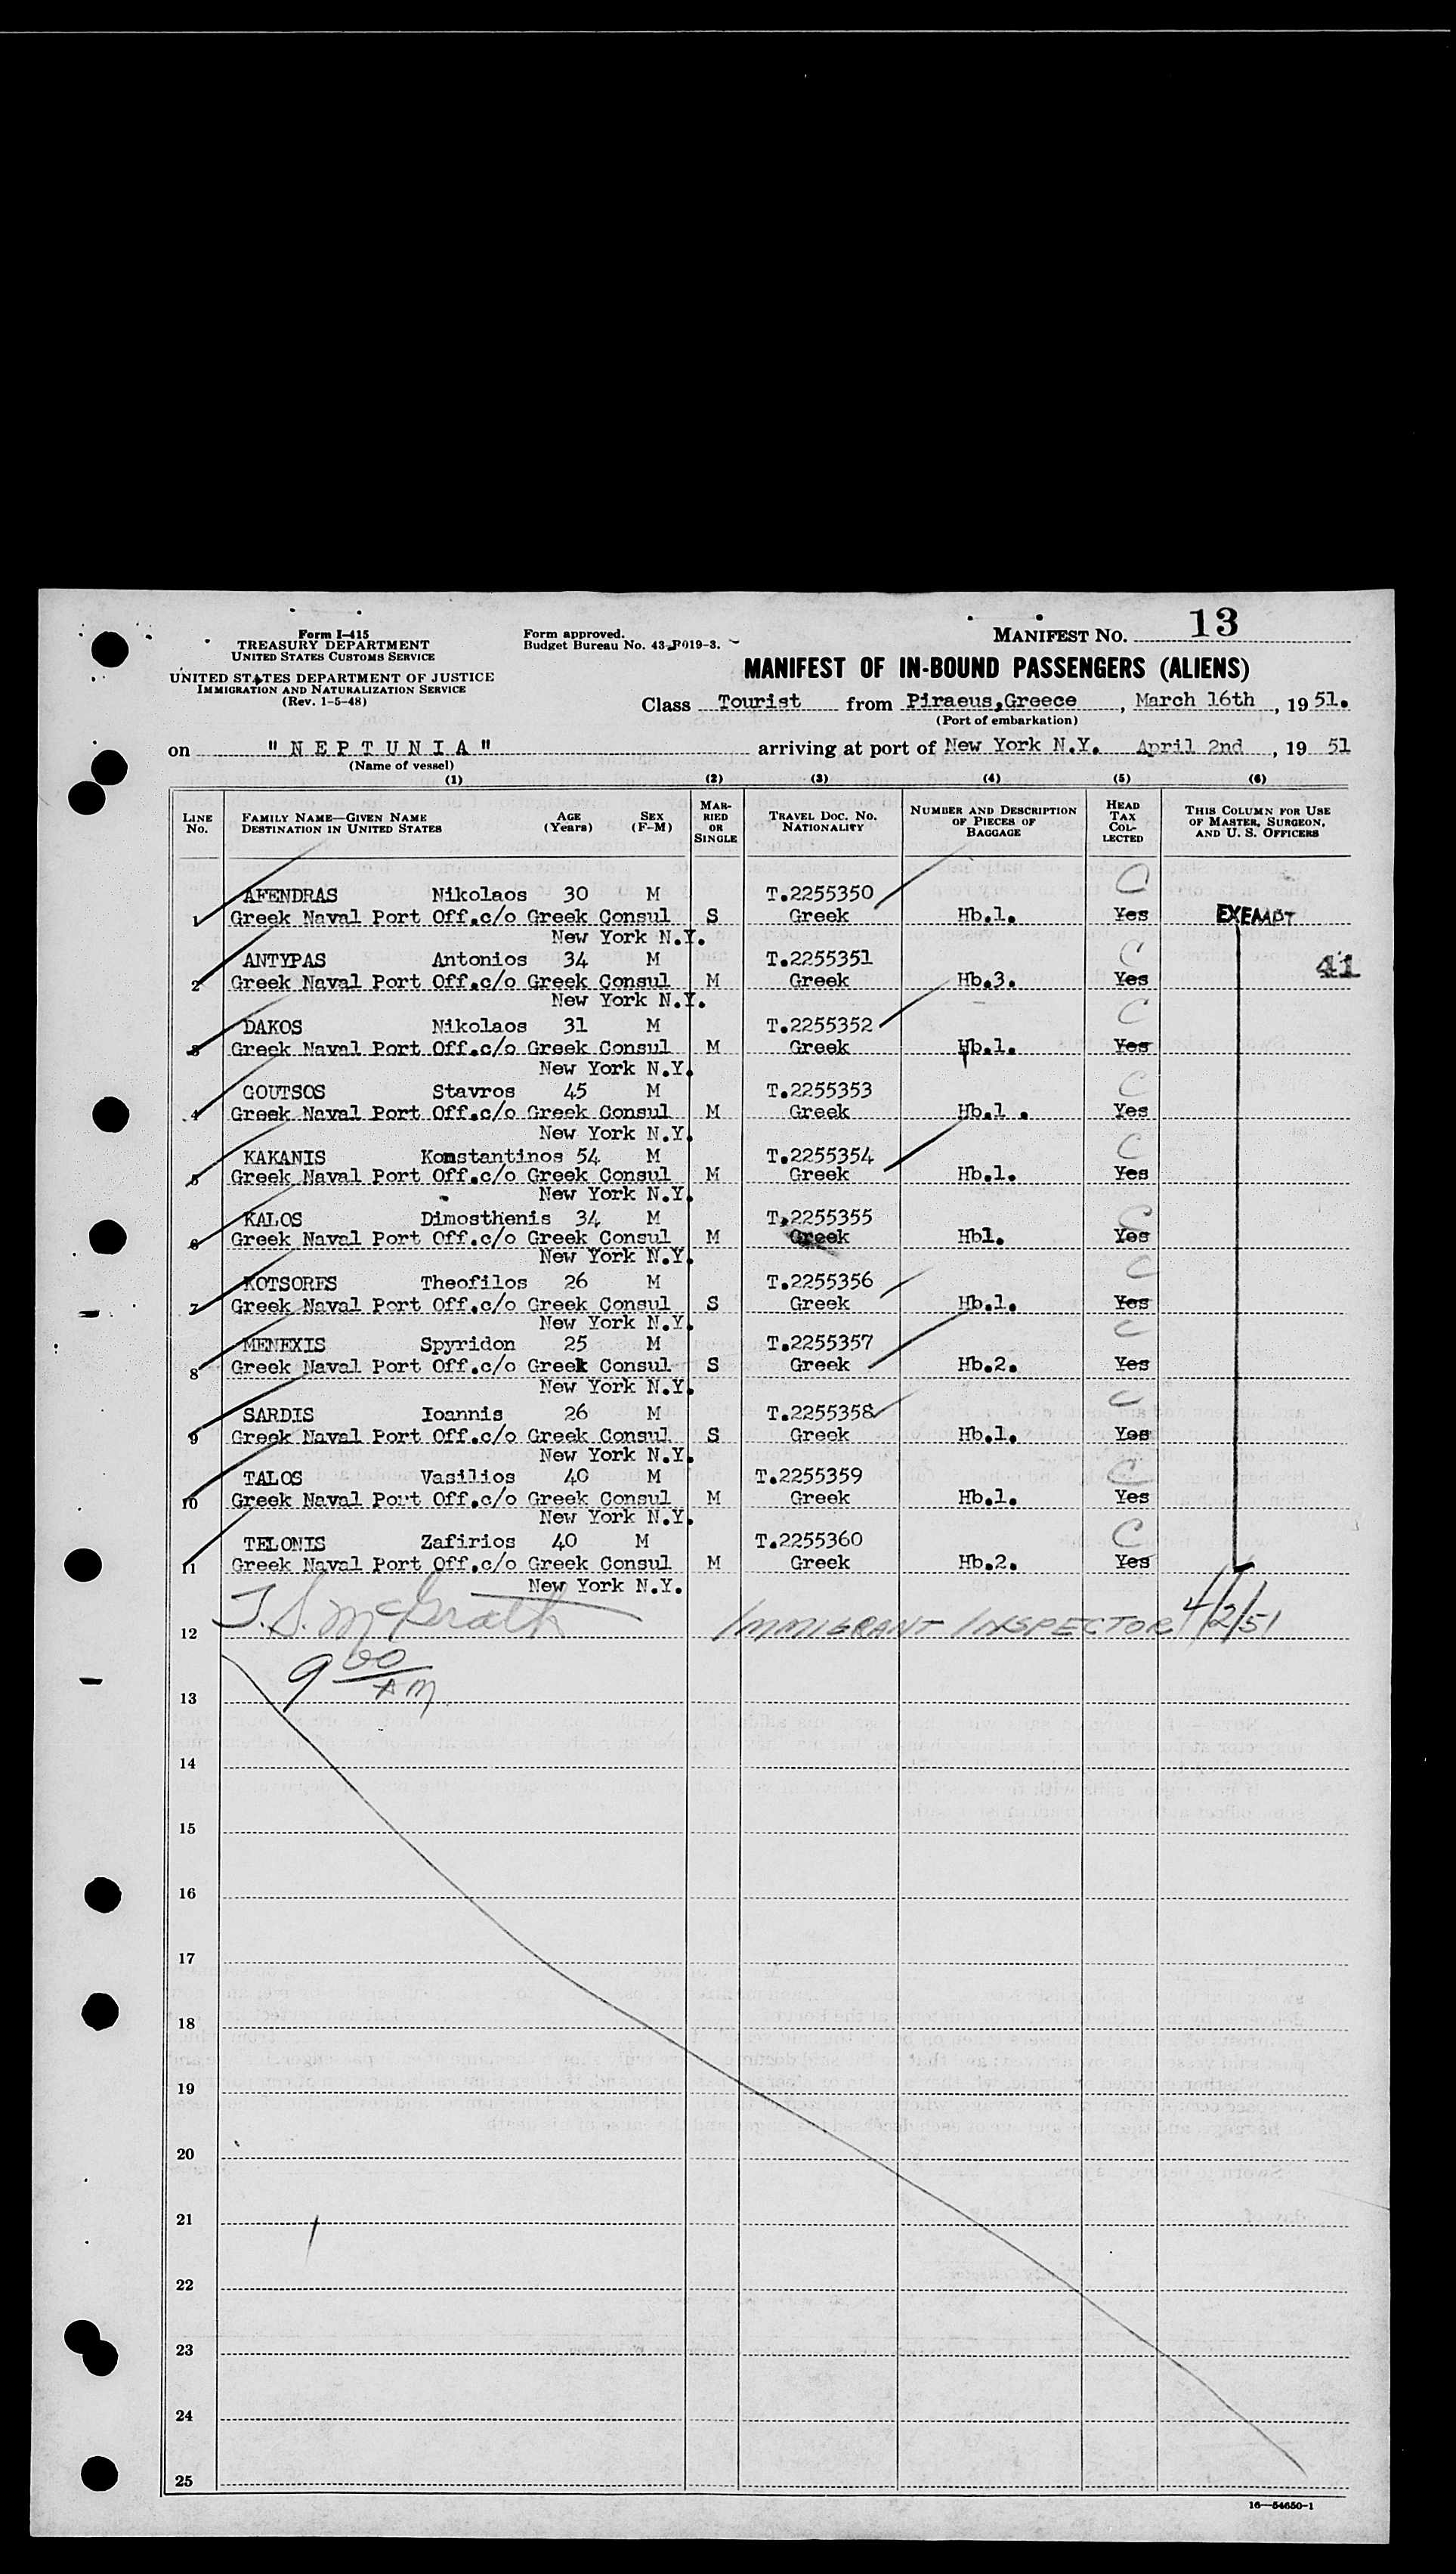 Form I-415
TREASURY DEPARTMENT
UNITED STATES CUSTOMS SERVICE
UNITED STATES DEPARTMENT OF JUSTICE
IMMIGRATION AND NATURALIZATION SERVICE
(Rev. 1-5-48)
Form approved.
Budget Bureau No. 43-R019-3.
MANIFEST NO. 13
MANIFEST OF IN-BOUND PASSENGERS (ALIENS)
Class Tourist from Piraeus,Greece, March 16th, 1951.
(Port of embarkation)
on "NEPTUNIA" arriving at port of New York N.Y. April 2nd, 19 51
(Name of vessel)
(1) (2) (3) (4) (5) (6)
LINE No. FAMILY NAME—GIVEN NAME DESTINATION IN UNITED STATES AGE (Years) SEX (F-M) MARRIED OR SINGLE TRAVEL DOC. NO. NATIONALITY NUMBER AND DESCRIPTION OF PIECES OF BAGGAGE HEAD TAX COLLECTED THIS COLUMN FOR USE OF MASTER, SURGEON, AND U. S. OFFICERS
AFENDRAS Nikolaos 30 M T.2255350 C
1 Greek Naval Port Off.c/o Greek Consul S Greek Hb.1. Yes EXEMPT
New York N.Y.
ANTYPAS Antonios 34 M T.2255351 C 41
2 Greek Naval Port Off.c/o Greek Consul M Greek Hb.3. Yes
New York N.Y.
DAKOS Nikolaos 31 M T.2255352 C
3 Greek Naval Port Off.c/o Greek Consul M Greek Hb.1. Yes
New York N.Y.
GOUTSOS Stavros 45 M T.2255353 C
4 Greek Naval Port Off.c/o Greek Consul M Greek Hb.1 . Yes
New York N.Y.
KAKANIS Konstantinos 54 M T.2255354 C
5 Greek Naval Port Off.c/o Greek Consul M Greek Hb.1. Yes
New York N.Y.
KALOS Dimosthenis 34 M T.2255355 C
6 Greek Naval Port Off.c/o Greek Consul M Greek Hb1. Yes
New York N.Y.
KOTSORES Theofilos 26 M T.2255356 C
7 Greek Naval Port Off.c/o Greek Consul S Greek Hb.1. Yes
New York N.Y.
MENEXIS Spyridon 25 M T.2255357 C
8 Greek Naval Port Off.c/o Greek Consul S Greek Hb.2. Yes
New York N.Y.
SARDIS Ioannis 26 M T.2255358 C
9 Greek Naval Port Off.c/o Greek Consul S Greek Hb.1. Yes
New York N.Y.
TALOS Vasilios 40 M T.2255359 C
10 Greek Naval Port Off.c/o Greek Consul M Greek Hb.1. Yes
New York N.Y.
TELONIS Zafirios 40 M T.2255360 C
11 Greek Naval Port Off.c/o Greek Consul M Greek Hb.2. Yes
New York N.Y.
12 J.S. McGrath IMMIGRANT INSPECTOR 4/2/51
9 00 AM
13
14
15
16
17
18
19
20
21
22
23
24
25
16—54650-1